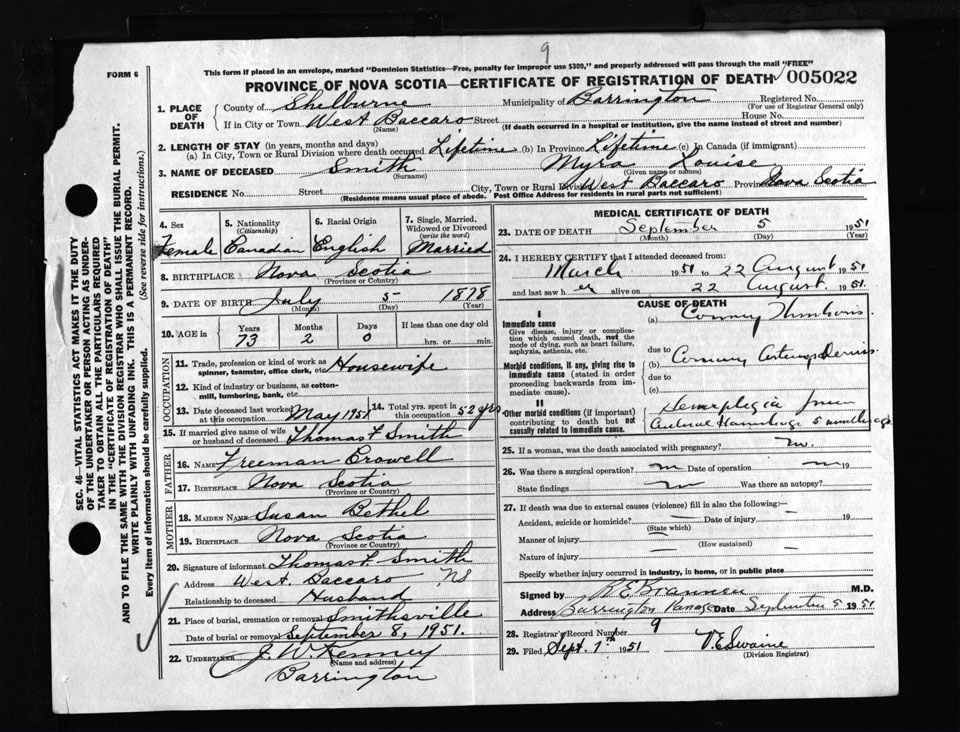 9
This form if placed in an envelope, marked "Dominion Statistics—Free, penalty for improper use $300," and properly addressed will pass through the mail "FREE"
FORM 6
PROVINCE OF NOVA SCOTIA—CERTIFICATE OF REGISTRATION OF DEATH 005022
1. PLACE OF DEATH
County of Shelburne Municipality of Barrington Registered No.
(For use of Registrar General only)
If in City or Town West Baccaro Street House No.
(Name) (If death occurred in a hospital or institution, give the name instead of street and number)
2. LENGTH OF STAY (in years, months and days)
(a) In City, Town or Rural Division where death occurred Lifetime (b) In Province Lifetime (c) In Canada (if immigrant)
3. NAME OF DECEASED Smith Myra Louise
(Surname) (Given name or names)
RESIDENCE No. Street City, Town or Rural Division West Baccaro Province Nova Scotia
(Residence means usual place of abode. Post Office Address for residents in rural parts not sufficient)
SEC. 46—VITAL STATISTICS ACT MAKES IT THE DUTY
OF THE UNDERTAKER OR PERSON ACTING AS UNDER-
TAKER TO OBTAIN ALL THE PARTICULARS REQUIRED
IN THE "CERTIFICATE OF REGISTRATION OF DEATH"
AND TO FILE THE SAME WITH THE DIVISION REGISTRAR WHO SHALL ISSUE THE BURIAL PERMIT.
WRITE PLAINLY WITH UNFADING INK. THIS IS A PERMANENT RECORD.
Every item of information should be carefully supplied. (See reverse side for instructions.)
4. Sex 5. Nationality (Citizenship) 6. Racial Origin 7. Single, Married, Widowed or Divorced (write the word)
Female Canadian English Married
8. BIRTHPLACE Nova Scotia
(Province or Country)
9. DATE OF BIRTH July 5 1878
(Month) (Day) (Year)
10. AGE in Years Months Days If less than one day old
73 2 0 hrs. or min.
OCCUPATION
11. Trade, profession or kind of work as spinner, teamster, office clerk, etc. Housewife
12. Kind of industry or business, as cotton-mill, lumbering, bank, etc.
13. Date deceased last worked at this occupation May 1951 14. Total yrs. spent in this occupation 52 yrs
15. If married give name of wife or husband of deceased Thomas F Smith
FATHER
16. NAME Freeman Crowell
17. BIRTHPLACE Nova Scotia
(Province or Country)
MOTHER
18. MAIDEN NAME Susan Bethel
19. BIRTHPLACE Nova Scotia
(Province or Country)
20. Signature of informant Thomas F. Smith
Address West Baccaro NS
Relationship to deceased Husband
21. Place of burial, cremation or removal Smithsville
Date of burial or removal September 8, 1951.
22. UNDERTAKER J. W. Kenney
(Name and address)
Barrington
MEDICAL CERTIFICATE OF DEATH
23. DATE OF DEATH September 5 1951
(Month) (Day) (Year)
24. I HEREBY CERTIFY that I attended deceased from:
March 1951 to 22 August 1951
and last saw her alive on 22 August. 1951.
CAUSE OF DEATH
I
Immediate cause (a)
Give disease, injury or complication which caused death, not the mode of dying, such as heart failure, asphyxia, asthenia, etc.
due to
Morbid conditions, if any, giving rise to immediate cause (stated in order proceeding backwards from immediate cause).
due to
(c)
II
Other morbid conditions (if important) contributing to death but not causally related to immediate cause.
Hemiplegia from
Cerebral Hemorrhage 5 months ago.
25. If a woman, was the death associated with pregnancy? no.
26. Was there a surgical operation? no Date of operation no 19
State findings no Was there an autopsy?
27. If death was due to external causes (violence) fill in also the following:—
Accident, suicide or homicide? Date of injury 19
(State which)
Manner of injury
(How sustained)
Nature of injury
Specify whether injury occurred in industry, in home, or in public place
Signed by M.D.
Address Barrington Passage Date September 5 1951
28. Registrar's Record Number 9
29. Filed Sept. 7th 1951 V.E Swaine
(Division Registrar)